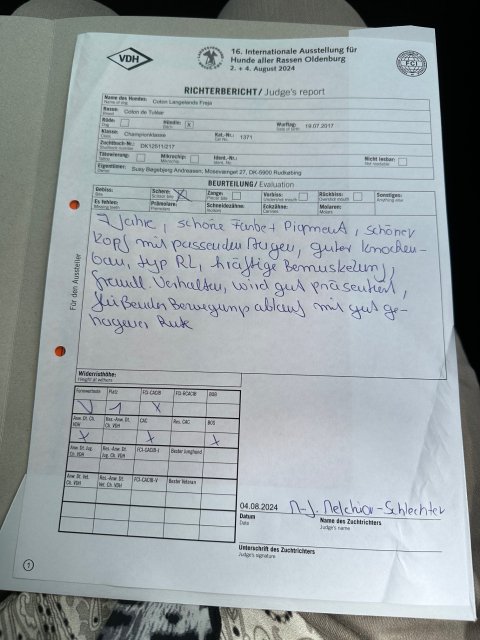 VDH
16. Internationale Ausstellung für
Hunde aller Rassen Oldenburg
2. + 4. August 2024
FCI
RICHTERBERICHT/ Judge's report
Name des Hundes: Coton Langelands Freja
Name of dog
Rasse: Coton de Tuléar
Breed
Rüde: Hündin: X Wurftag: 19.07.2017
Dog Bitch Date of birth
Klasse: Championklasse Kat.-Nr.: 1371
Class Cat.-No.
Zuchtbuch-Nr.: DK12611/2017
Studbook number
Tätowierung: Mikrochip: Ident.-No. Nicht lesbar:
Tattoo Microchip Ident. No. Not readable
Eigentümer: Susy Bøgebjerg Andreasen; Mosevænget 27, DK-5900 Rudkøbing
Owner
BEURTEILUNG/ Evaluation
Gebiss: Schere: X Zange: Vorbiss: Rückbiss: Sonstiges:
Bite Scissor bite Pincer bite Undershot mouth Overshot mouth Anything else
Es fehlen: Prämolare: Schneidezähne: Eckzähne: Molaren:
Missing teeth Premolars Incisors Canines Molars
7 Jahre, schöne Farbe + Pigment, schöner
Kopf mit passenden Augen, guter Knochen-
bau, typ RL, kräftige Bemuskelung,
freundl. Verhalten, wird gut präsentiert,
fließender Bewegungsablauf mit gut ge-
tragener Rute
Für den Aussteller
Widerristhöhe:
Height at withers
Formwertnote Platz FCI-CACIB FCI-RCACIB BOB
V 1 X
Anw. Dt. Ch. VDH Res.-Anw. Dt. Ch. VDH CAC Res. CAC BOS
X X X
Anw. Dt. Jug. Ch. VDH Res.-Anw. Dt. Jug. Ch. VDH FCI-CACIB-J Bester Junghund
Anw. Dt. Vet. Ch. VDH Res.-Anw. Dt. Vet. Ch. VDH FCI-CACIB-V Bester Veteran
04.08.2024 M-J. Melchior-Schlechter
Datum Name des Zuchtrichters
Date Judge's name
Unterschrift des Zuchtrichters
Judge's signature
1